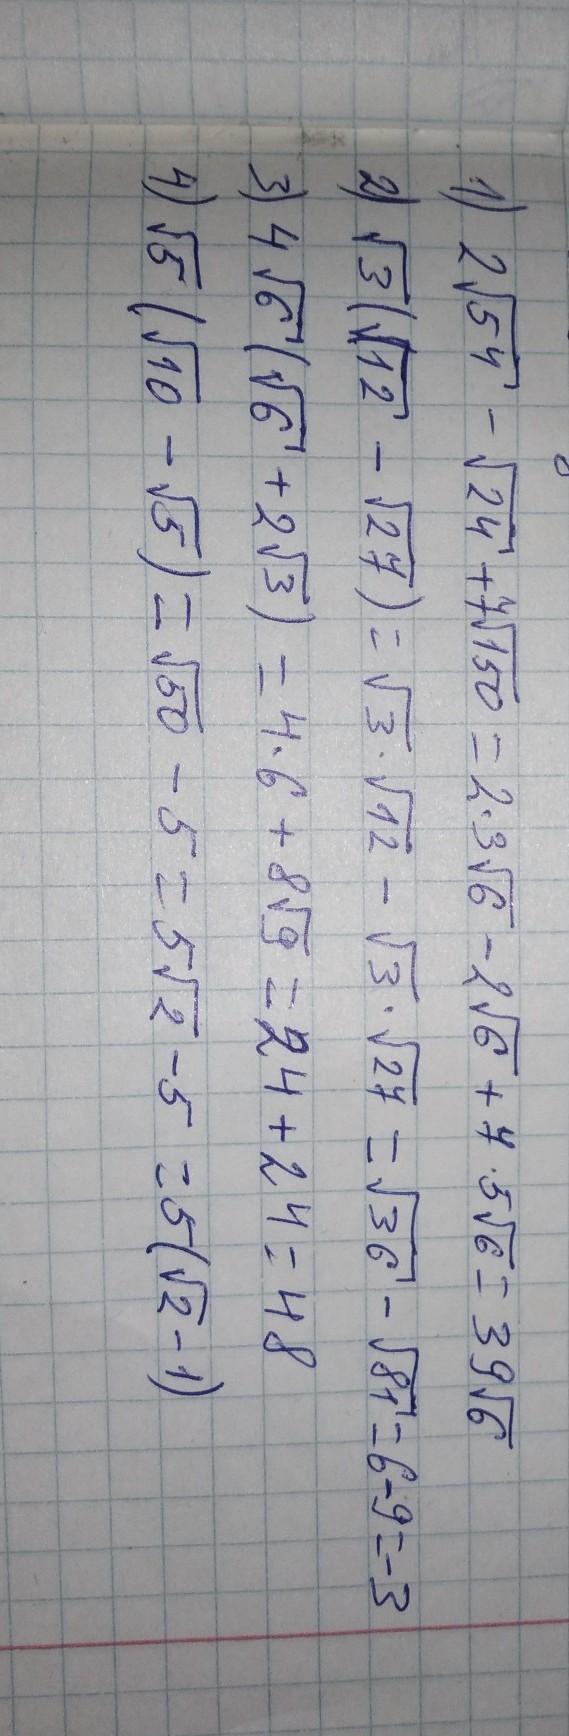 1) 2√54 - √24 + 7√150 = 2·3√6 - 2√6 + 7·5√6 = 39√6
2) √3(√12 - √27) = √3·√12 - √3·√27 = √36 - √81 = 6-9 = -3
3) 4√6(√6 + 2√3) = 4·6 + 8√9 = 24 + 24 = 48
4) √5(√10 - √5) = √50 - 5 = 5√2 - 5 = 5(√2 - 1)